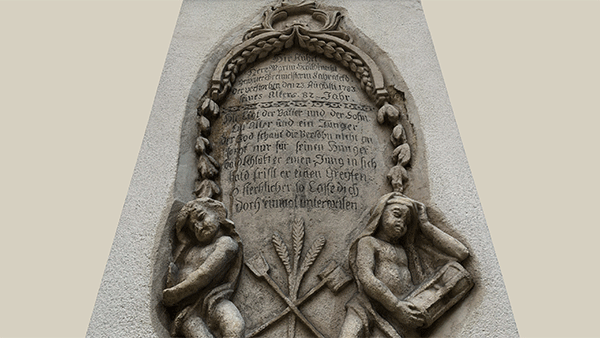 Hie Ruhet
Herr
der verstorben den 23 Augusti 1783
seines Alters 82 Jahr.
Hie Ligt der Vatter und der Sohn
Ein Alter und ein Junger
der Tod schaut die Persohn nicht an
sorgt nur für seinen Hunger
bald er einen Jung in sich
bald frist er einen Greysen
O sterblicher so Lasse dich
doch einmol unterweisen